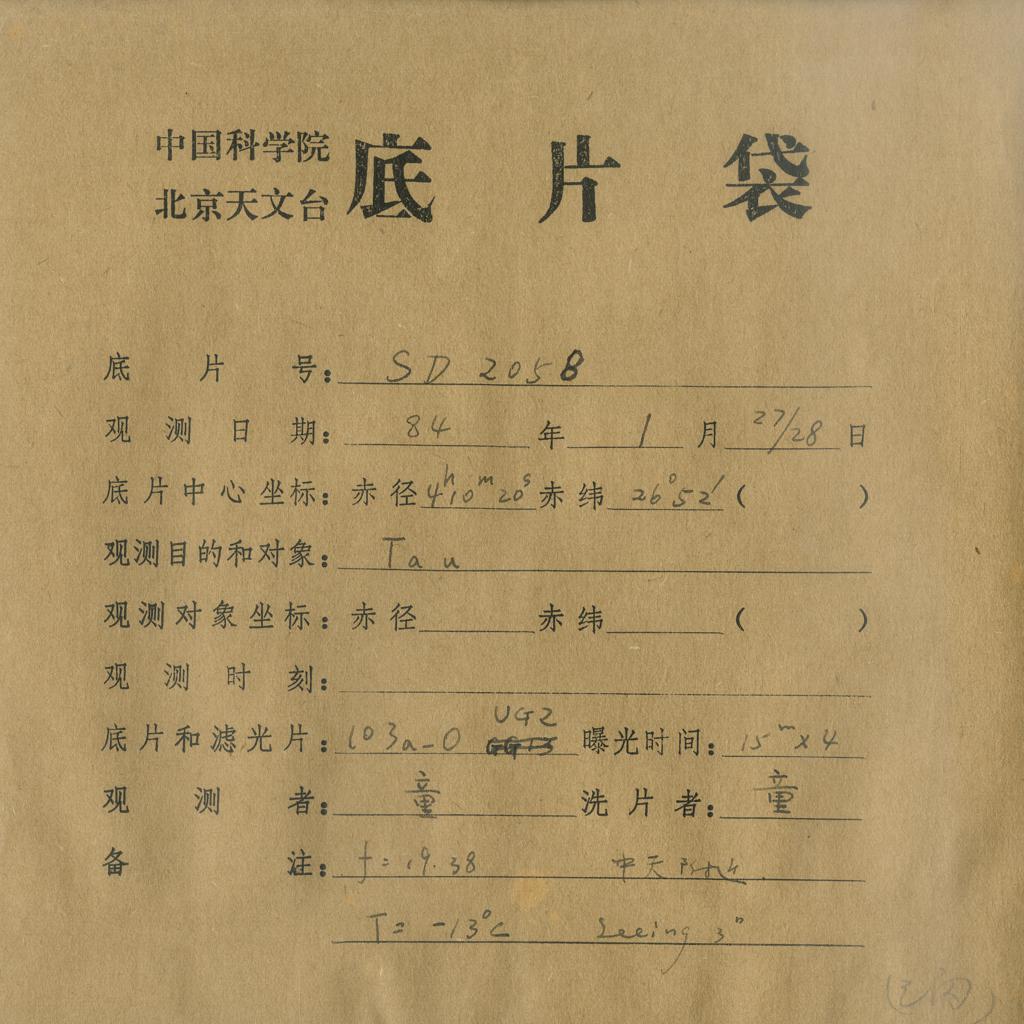 中国科学院
北京天文台
底片袋
底片号: SD 2058
观测日期: 84 年 1 月 27/28 日
底片中心坐标: 赤径 4h10m20s 赤纬 26°52′ ( )
观测目的和对象: Tau
观测对象坐标: 赤径 赤纬 ( )
观测时刻:
UG2
底片和滤光片: 103a-O GG13 曝光时间: 15m×4
观测者: 童 洗片者: 童
备注: f=19.38 中天附近
T=-13°C Seeing 3"